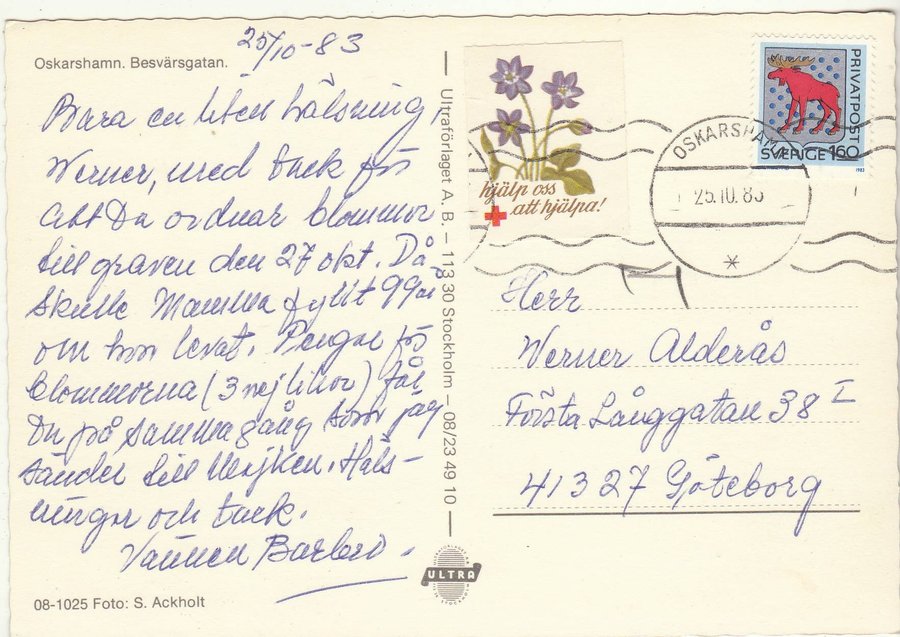 25/10-83
Oskarshamn. Besvärsgatan.
Bara en liten hälsning,
Werner, med tack för
att Du ordnar blommor
till graven den 27 okt. Då
skulle Mamma fyllt 99 år
om hon levat. Pengar för
blommorna (3 nejlikor) får
Du på samma gång som jag
sänder till Mejken. Häls-
ningar och tack.
Vännen Barbro.
08-1025 Foto: S. Ackholt
Ultraförlaget A. B. – 113 30 Stockholm – 08/23 49 10
ULTRA
hjälp oss
att hjälpa!
OSKARSHAMN
25.10.83
PRIVATPOST
SVERIGE 160
1983
Herr
Werner Alderås
Första Långgatan 38 I
41327 Göteborg